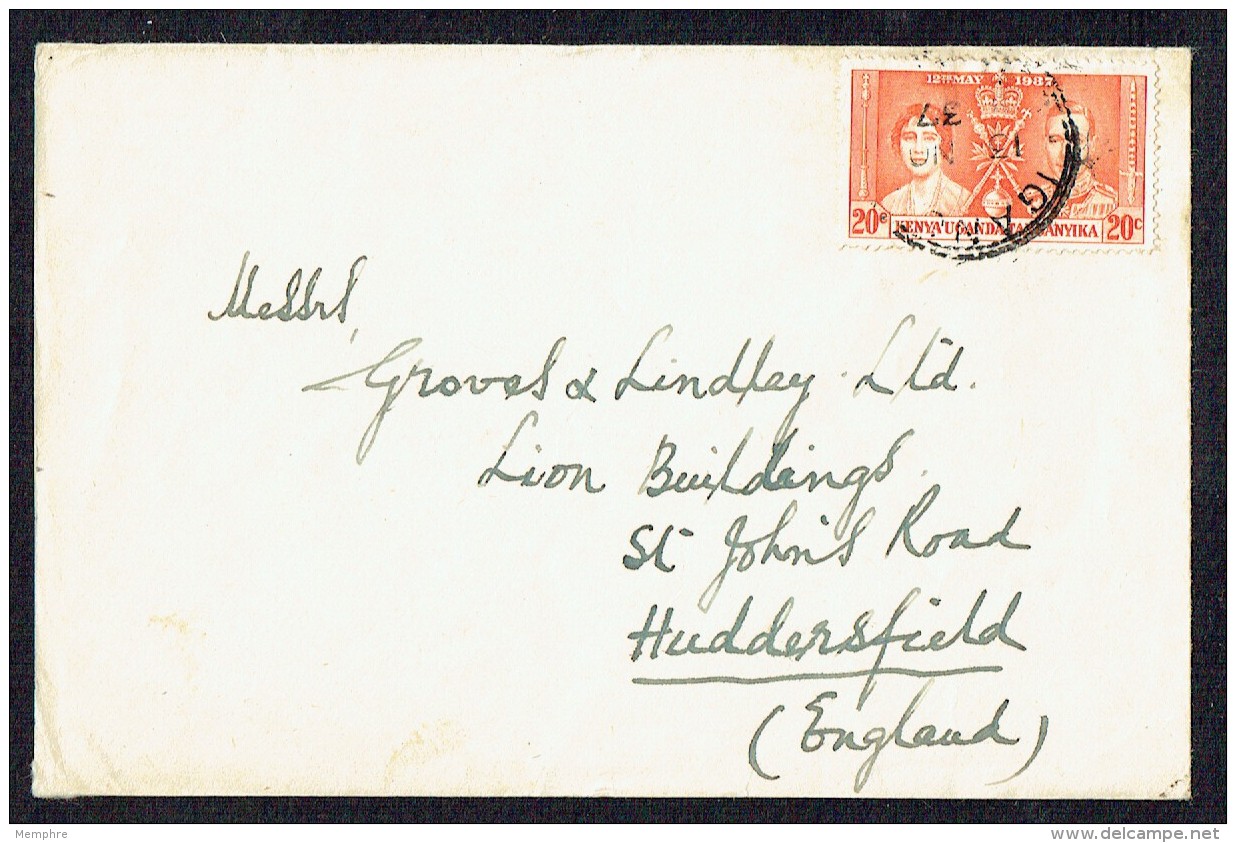 12TH MAY 1937
37
13
20c KENYA UGANDA TANGANYIKA 20c
Messrs,
Groves & Lindley Ltd.
Lion Buildings.
St John's Road
Huddersfield
(England)
Memphre
delcampe.net